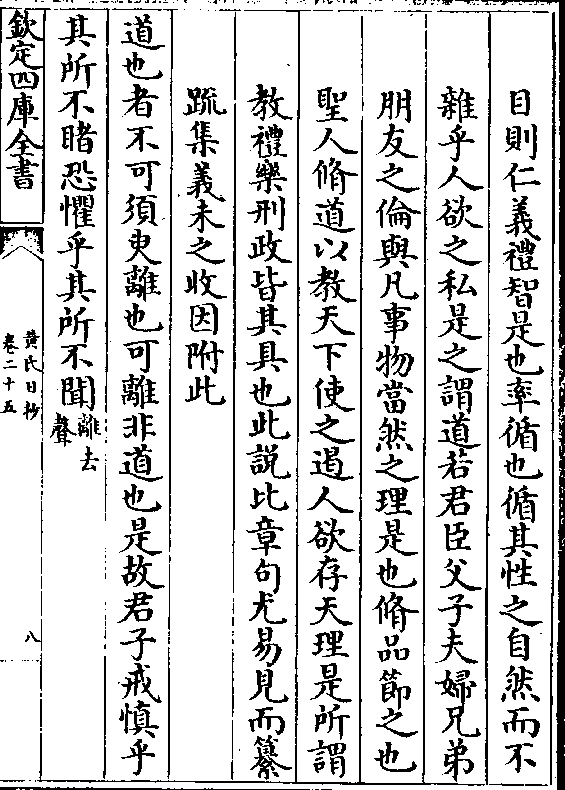 目則仁義禮智是也率循也循其性之自然而不
雜乎人欲之私是之謂道若君臣父子夫婦兄弟
朋友之倫與凡事物當然之理是也脩品節之也
聖人脩道以教天下使之遏人欲存天理是所謂
教禮樂刑政皆其具也此説比章句尤易見而纂
疏集義未之收因附此
道也者不可須臾離也可離非道也是故君子戒慎乎
其所不睹恐懼乎其所不聞離去聲
欽定四庫全書
黄氏日抄
卷二十五
八